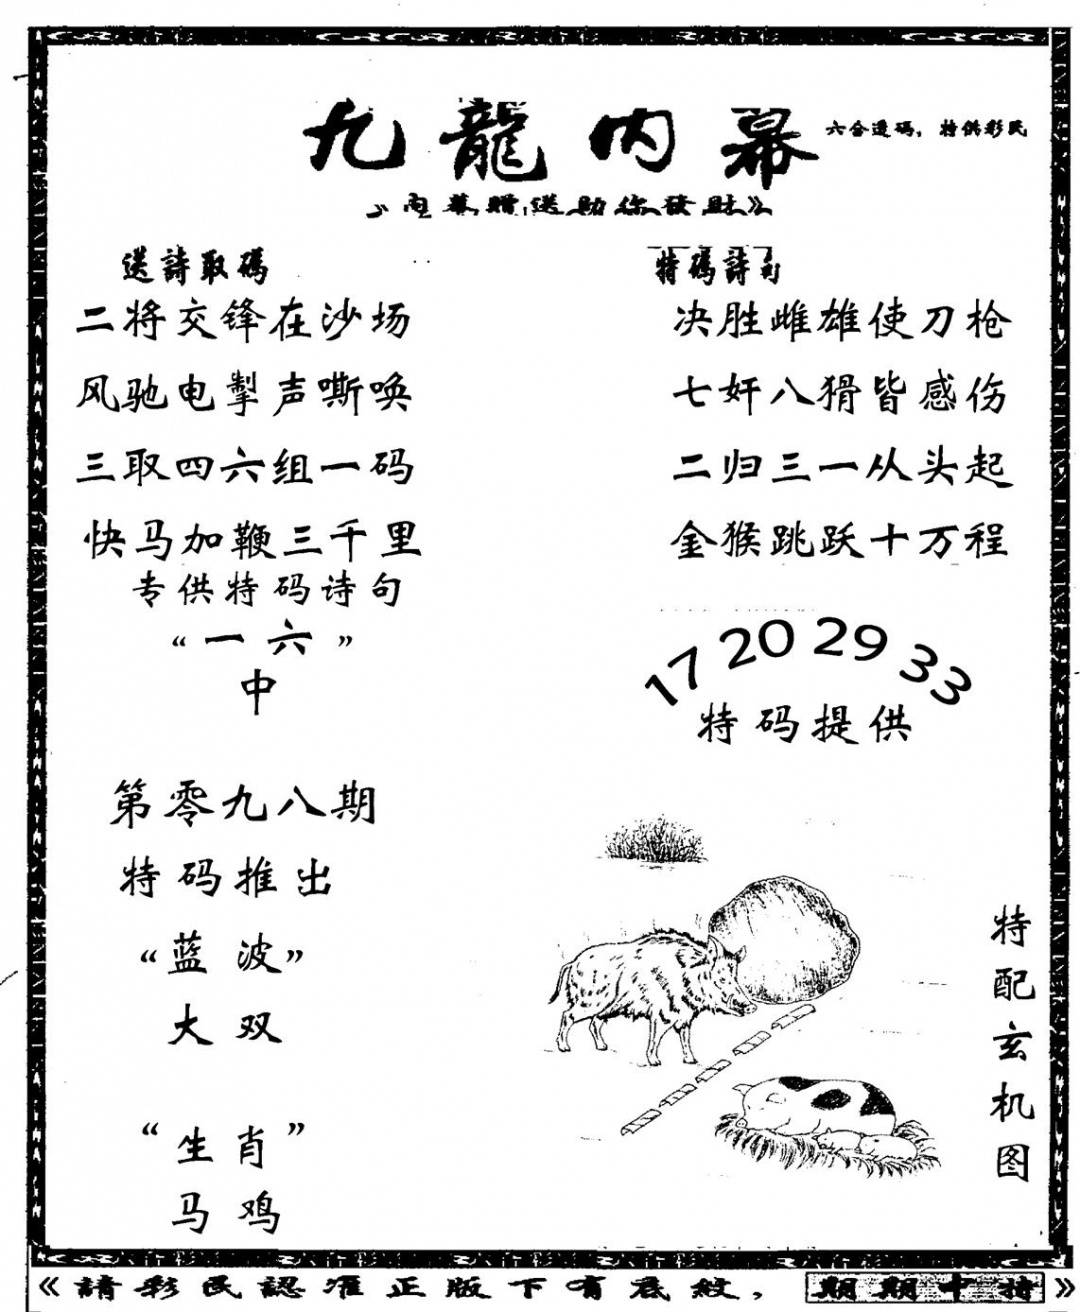 九龍内幕
六合透碼，特供彩民
内幕赠送助你發财》
送詩取碼
二将交锋在沙场
风驰电掣声嘶唤
三取四六组一码
快马加鞭三千里
专供特码诗句
“一六”
中
第零九八期
特码推出
“蓝波”
大双
“生肖”
马鸡
特碼詩句
决胜雌雄使刀枪
七奸八猾皆感伤
二归三一从头起
金猴跳跃十万程
17 20 29 33
特码提供
特配玄机图
《請彩民認准正版下有底紋，期期中特》